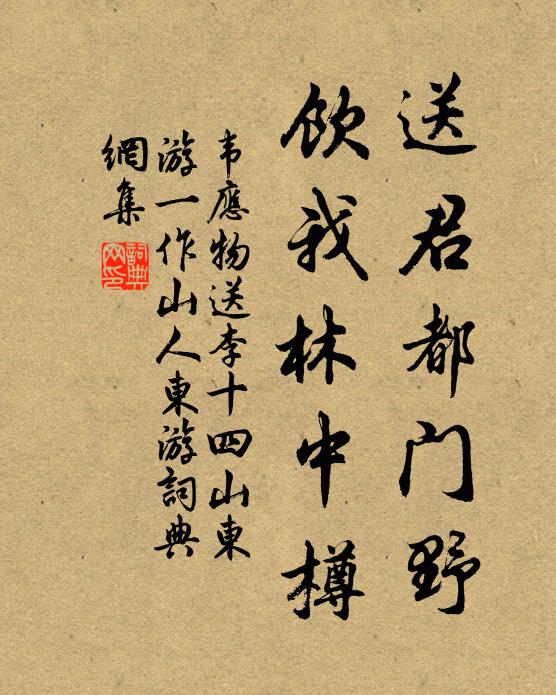 送君都門野
飲我林中樽
韦應物送李十四山東
游一作山人東游詞典
網集
詞典
网印